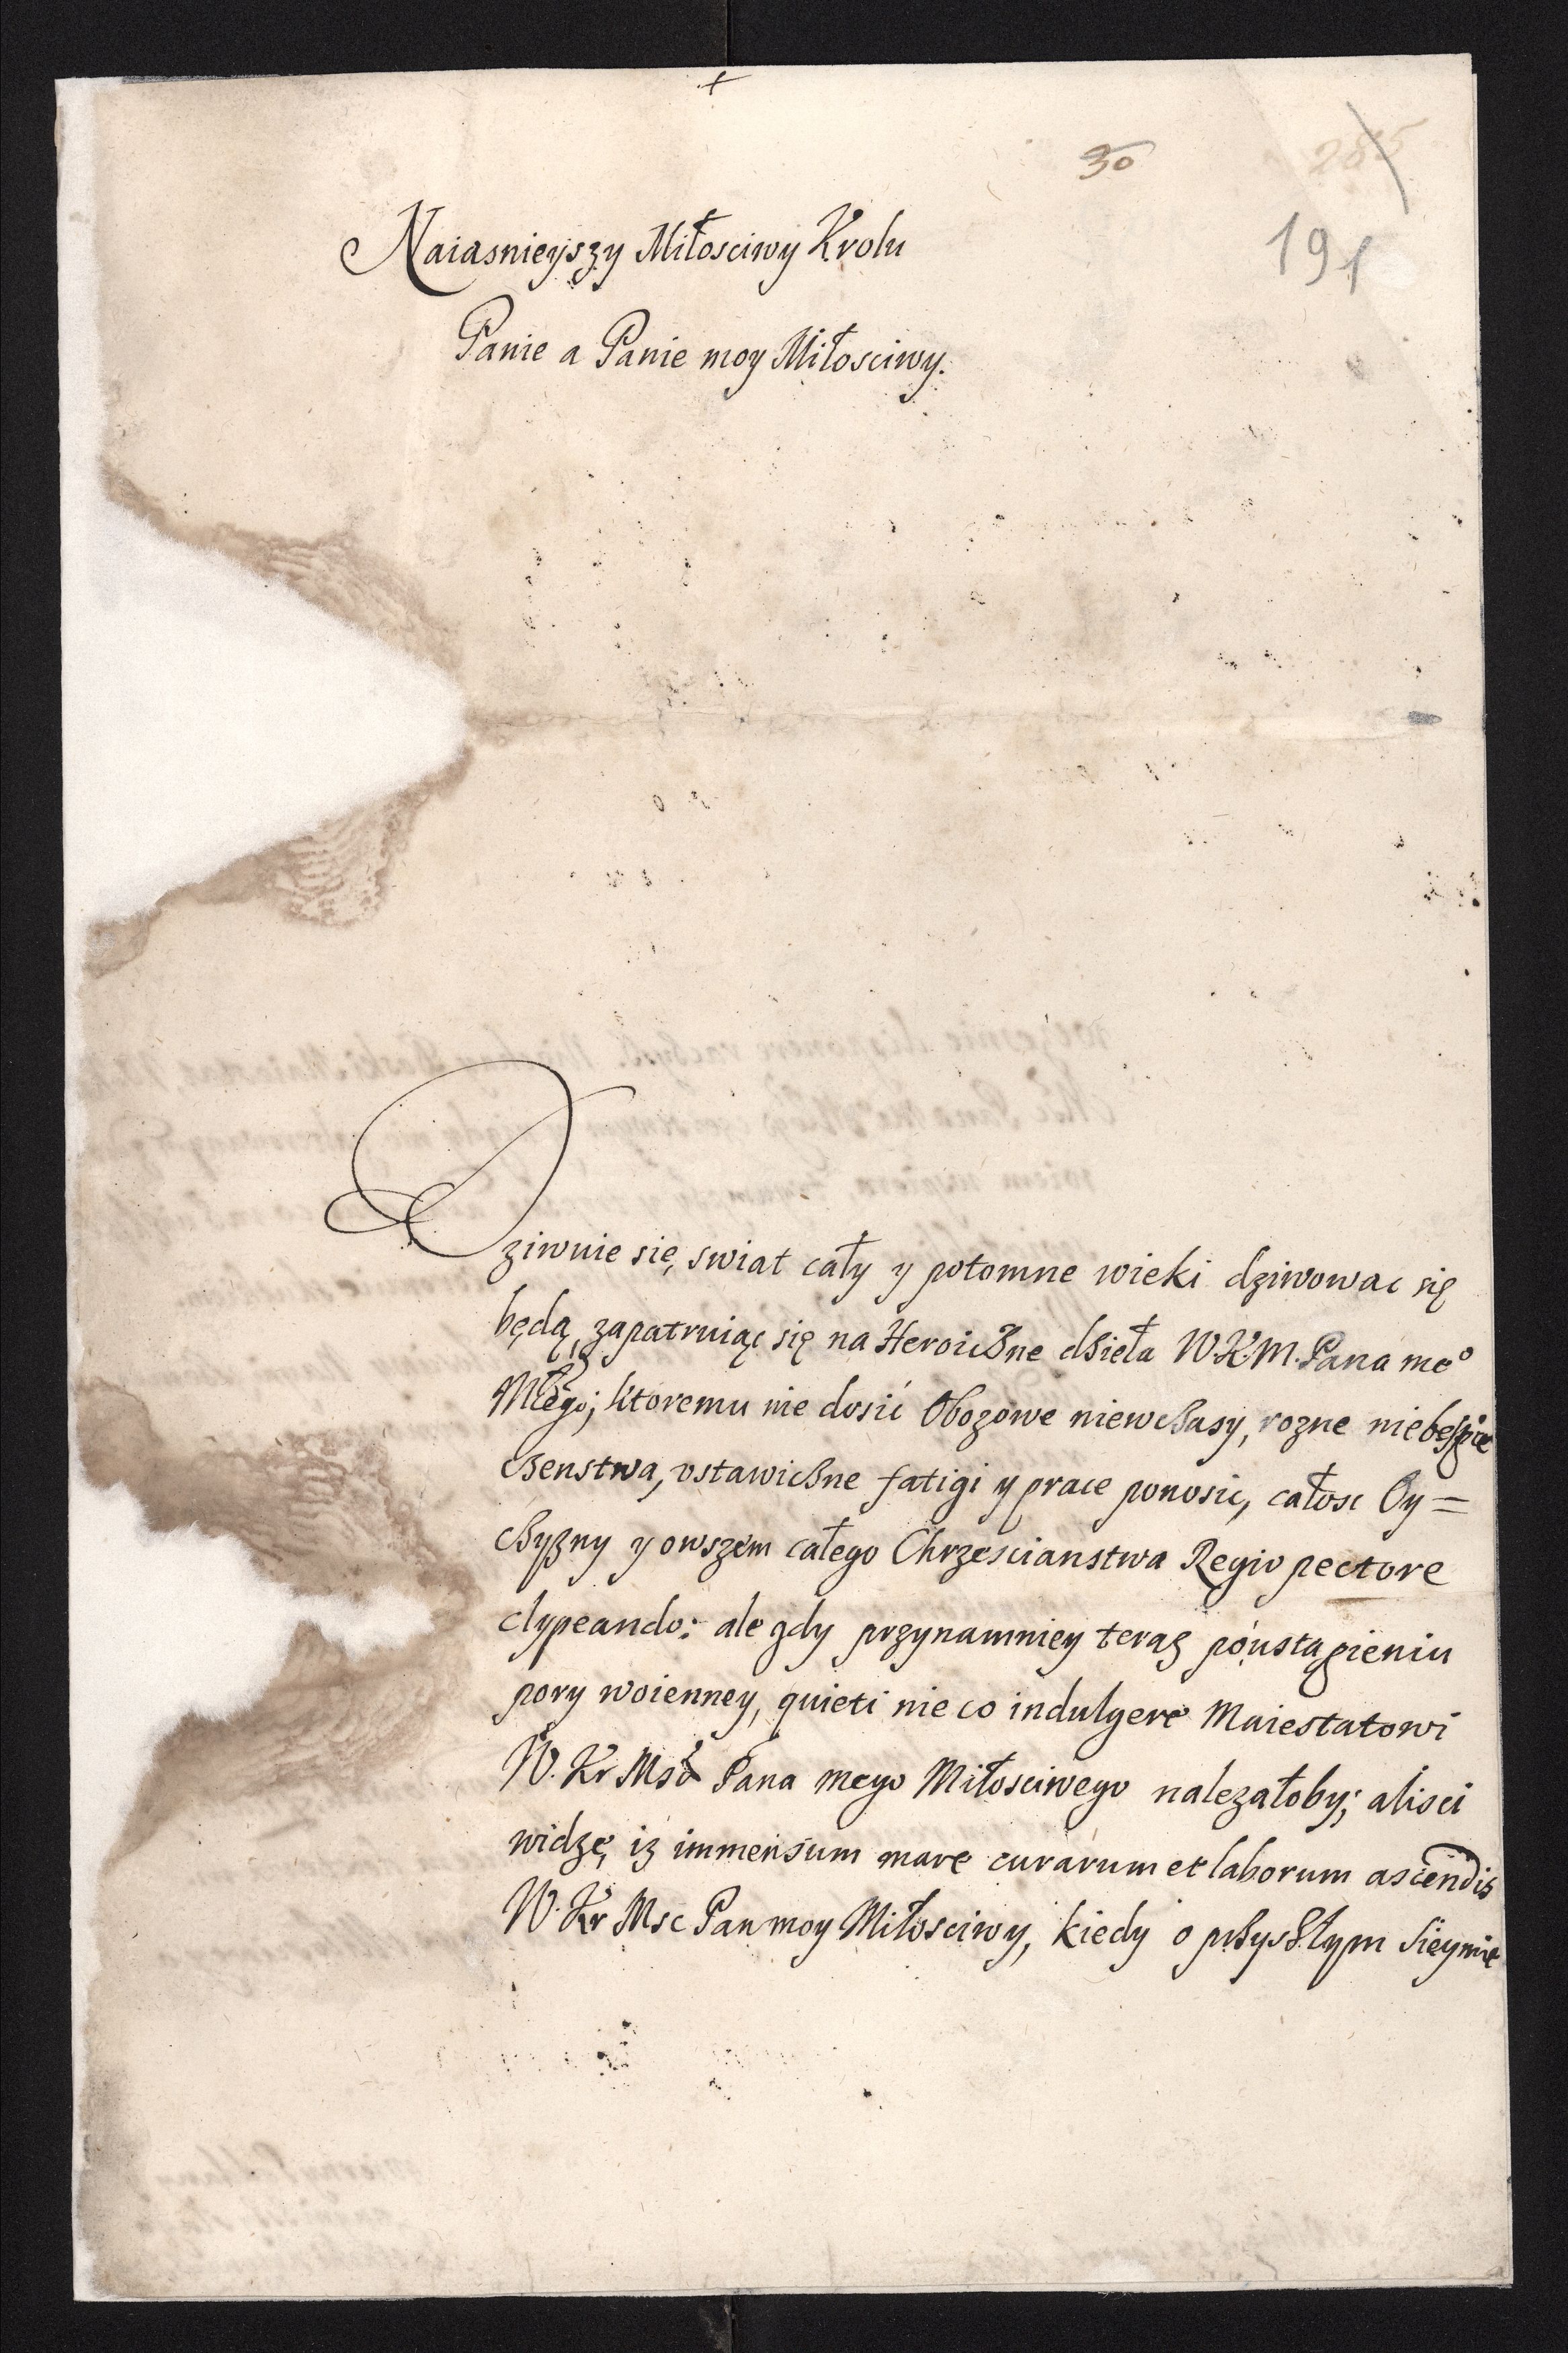 +
30
285
191
Naiasnieyszy Miłosciwy Krolu
Panie a Panie moy Miłosciwy.
Dziwuie się, swiat cały y potomne wieki dziwowac się
będą, zapatruiąc się na Heroiczne dzieła W.K.M. Pana meo
Młego; ktoremu nie dosić Obozowe niewczasy, rozne niebespie
czenstwa, ustawiczne fatigi y prace ponosic, całosc Oy=
czyzny y owszem całego Chrzescianstwa Regio pectore
clypeando: ale gdy przynamniey teraz po ustąpieniu
pory woienney, quieti nieco indulgere Maiestatowi
W. Kr Msci Pana mego Miłosciwego nalezałoby; alisci
widzę, iz immensum mare curarum et laborum ascendis
W. Kr Msc Pan moy Miłosciwy, kiedy o przyszłym Sieymie